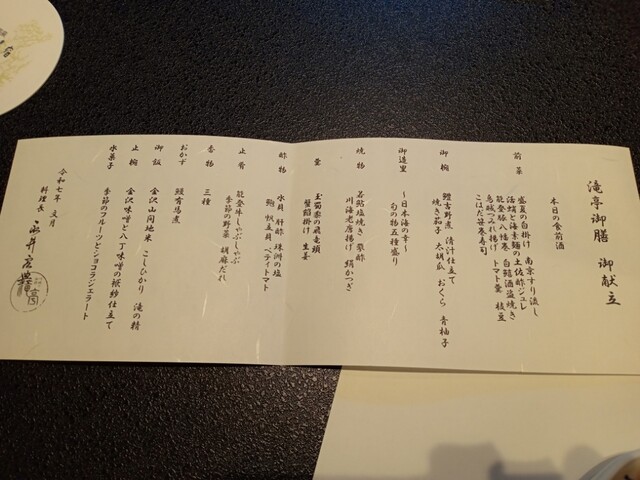 滝亭御膳 御献立
本日の食前酒
前菜
盛夏の白掛け 南京すり流し
活蛸と海素麺の土佐酢ジュレ
能登豚八幡巻 白鱚酒盗焼き
鳥城つみれ揚げ トマト葛 枝豆
こはだ笹巻寿司
御椀
鱧吉野煮 清汁仕立て
焼き茄子 太胡瓜 おくら 青柚子
御造里
～日本海の幸～
旬の物五種盛り
焼物
若鮎塩焼き 蓼酢
川海老唐揚げ 絹かつぎ
釜
玉蜀黍の飛竜頭
蟹餡掛け 生姜
酢物
水貝 肝酢 珠洲の塩
鮑 帆立貝 ペティトマト
止肴
能登牛しゃぶしゃぶ
季節の野菜 胡麻だれ
香物
三種
おかず
鰻有馬煮
御飯
金沢山間地米 こしひかり 滝の精
止椀
金沢味噌と八丁味噌の袱紗仕立て
水菓子
季節のフルーツとショコラジェラート
令和七年 文月
料理長